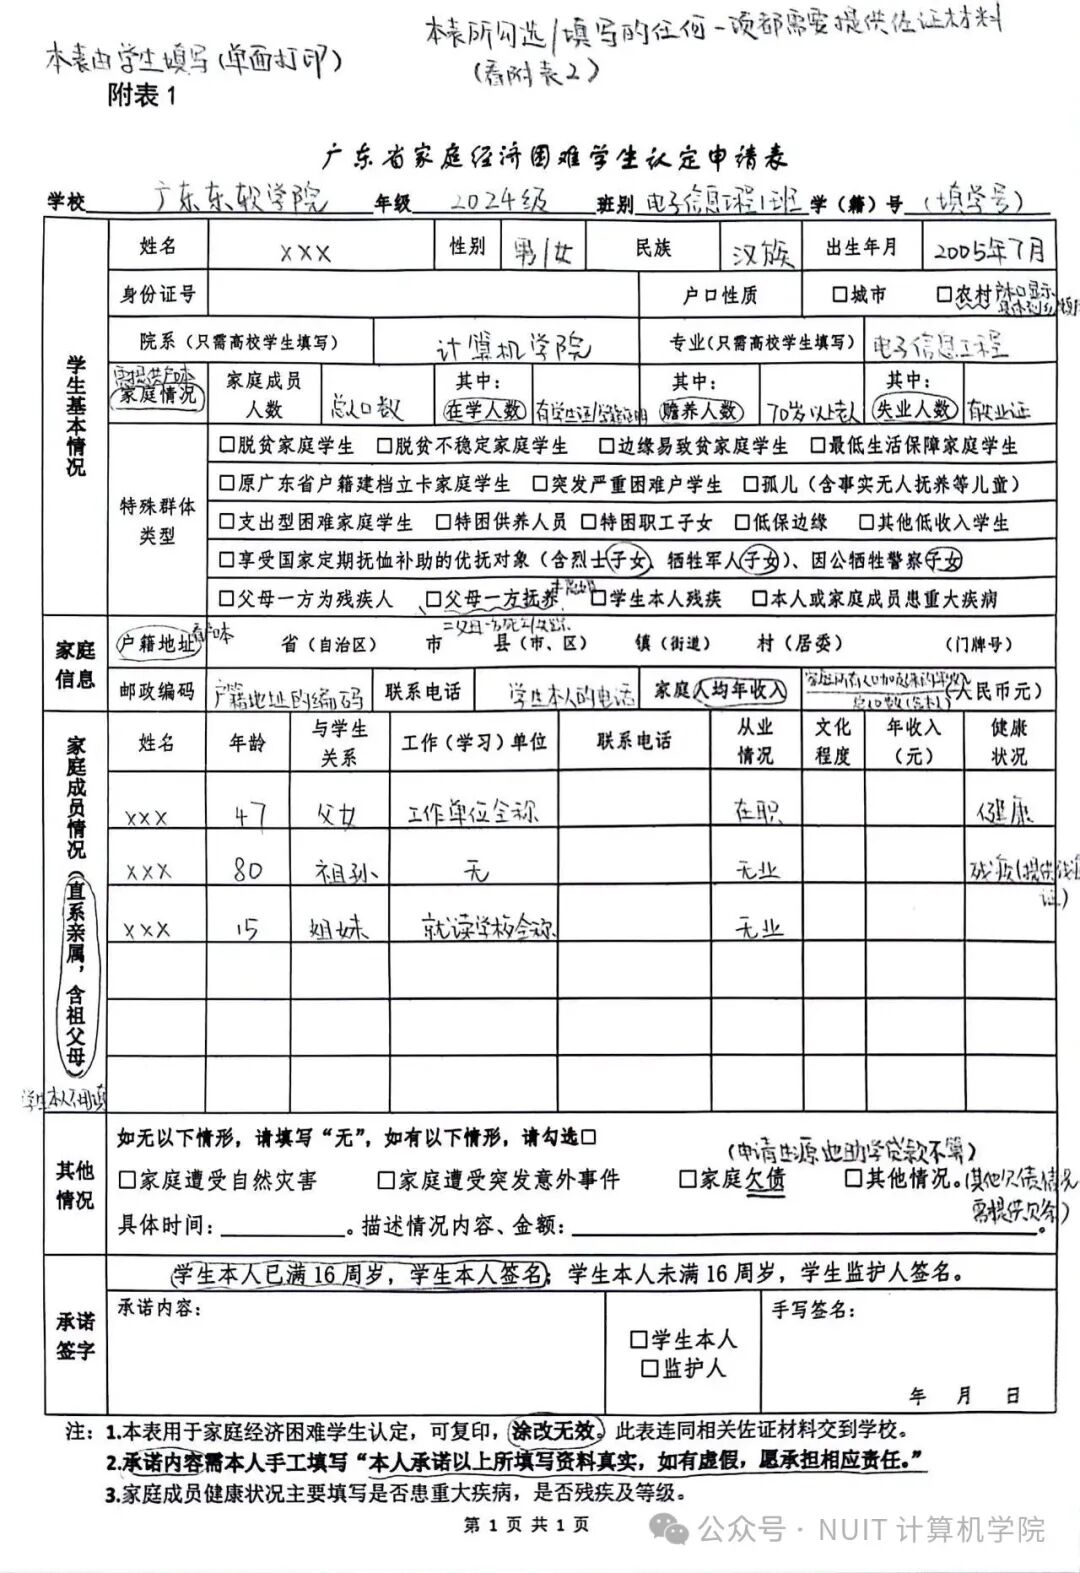 本表所勾选/填写的任何一项都需要提供佐证材料
(看附表2)
本表由学生填写(单面打印)
附表1
广东省家庭经济困难学生认定申请表
学校 广东东软学院 年级 2024级 班别 电子信息工程1班 学（籍）号 (填学号)
学生基本情况
姓名 XXX 性别 男/女 民族 汉族 出生年月 2005年7月
身份证号 户口性质 □城市 □农村
院系（只需高校学生填写） 计算机学院 专业(只需高校学生填写) 电子信息工程
需提供户口本
家庭情况 家庭成员人数 总人口数 其中：在学人数 有学生证/学籍证明 其中：赡养人数 70岁以上老人 其中：失业人数 有失业证
特殊群体类型
□脱贫家庭学生 □脱贫不稳定家庭学生 □边缘易致贫家庭学生 □最低生活保障家庭学生
□原广东省户籍建档立卡家庭学生 □突发严重困难户学生 □孤儿（含事实无人抚养等儿童）
□支出型困难家庭学生 □特困供养人员 □特困职工子女 □低保边缘 □其他低收入学生
□享受国家定期抚恤补助的优抚对象（含烈士子女、牺牲军人子女）、因公牺牲警察子女
□父母一方为残疾人 □父母一方抚养 □学生本人残疾 □本人或家庭成员患重大疾病
家庭信息
户籍地址 看户口本 省（自治区） 市 县（市、区） 镇（街道） 村（居委） （门牌号）
邮政编码 户籍地址的编码 联系电话 学生本人的电话 家庭人均年收入 （人民币元）
家庭成员情况（直系亲属，含祖父母）
学生本人不用填
姓名 年龄 与学生关系 工作（学习）单位 联系电话 从业情况 文化程度 年收入（元） 健康状况
XXX 47 父女 工作单位全称 在职 健康
XXX 80 祖孙 无 无业 残疾(提供残疾证)
XXX 15 姐妹 就读学校全称 无业
其他情况
如无以下情形，请填写“无”，如有以下情形，请勾选□
(申请生源地助学贷款不算)
□家庭遭受自然灾害 □家庭遭受突发意外事件 □家庭欠债 □其他情况。(其他欠债情况
需提供欠条)
具体时间：。描述情况内容、金额：。
承诺签字
学生本人已满16周岁，学生本人签名；学生本人未满16周岁，学生监护人签名。
承诺内容： □学生本人 手写签名：
□监护人
年 月 日
注：1.本表用于家庭经济困难学生认定，可复印，涂改无效。此表连同相关佐证材料交到学校。
2.承诺内容需本人手工填写“本人承诺以上所填写资料真实，如有虚假，愿承担相应责任。”
3.家庭成员健康状况主要填写是否患重大疾病，是否残疾及等级。
第1页共1页
公众号·NUIT计算机学院